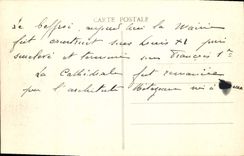 CARTE POSTALE
Le Beffroi, aujourd'hui la Mairie
fut construit sous Louis XI puis
surélevé et terminé sous François 1er
La Cathédrale fut remaniée
par l'architecte né à